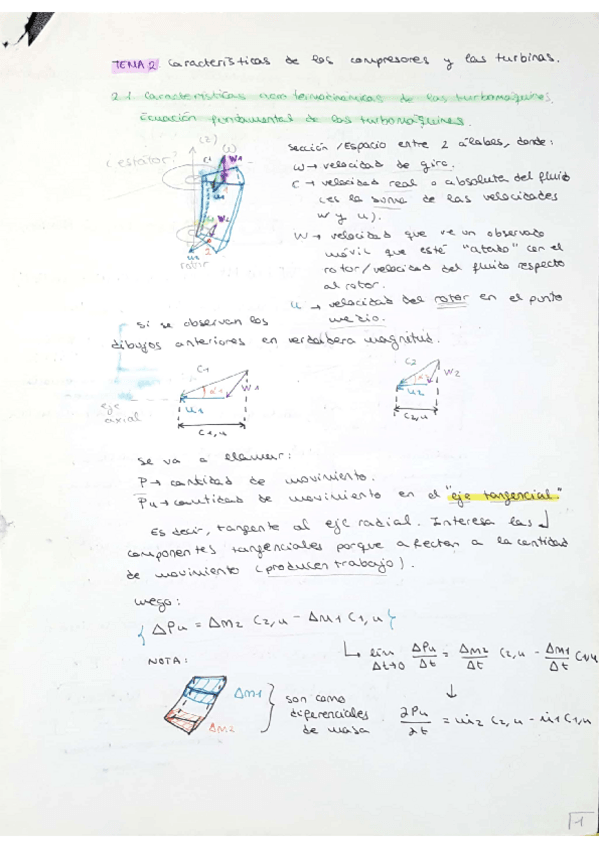 TEMA 2 Características de los compresores y las turbinas.
2.1. Características non termodinámicas de las turbomáquines.
Ecuación fundamental de las turbomáquines.
(z)
¿estátor?
ω
C1 W1
u1
1
W2
u2 2
rotor
sección/Espacio entre 2 álabes, donde:
ω → velocidad de giro.
C → velocidad real o absoluta del fluido
(es la suma de las velocidades
w y u).
W → velocidad que ve un observado
móvil que esté "atado" con el
rotor/velocidad del fluido respecto
al rotor.
u → velocidad del rotor en el punto
medio.
si se observan los
dibujos anteriores en verdadera magnitud.
C1
W1
α1
u1
C1,u
eje
axial
C2
W2
α2
u2
C2,u
Se va a llamar:
P → cantidad de movimiento.
Pu → cantidad de movimiento en el "eje tangencial."
Es decir, tangente al eje radial. Interesa las
componentes tangenciales porque afectan a la cantidad
de movimiento (producen trabajo).
Luego:
{ ΔPu = Δm2 C2,u - Δm1 C1,u }
↳ lim Δt→0 ΔPu/Δt = Δm2/Δt C2,u - Δm1/Δt C1,u
↓
NOTA:
Δm1
Δm2
son como
diferenciales
de masa
∂Pu/∂t = ṁ2 C2,u - ṁ1 C1,u
1